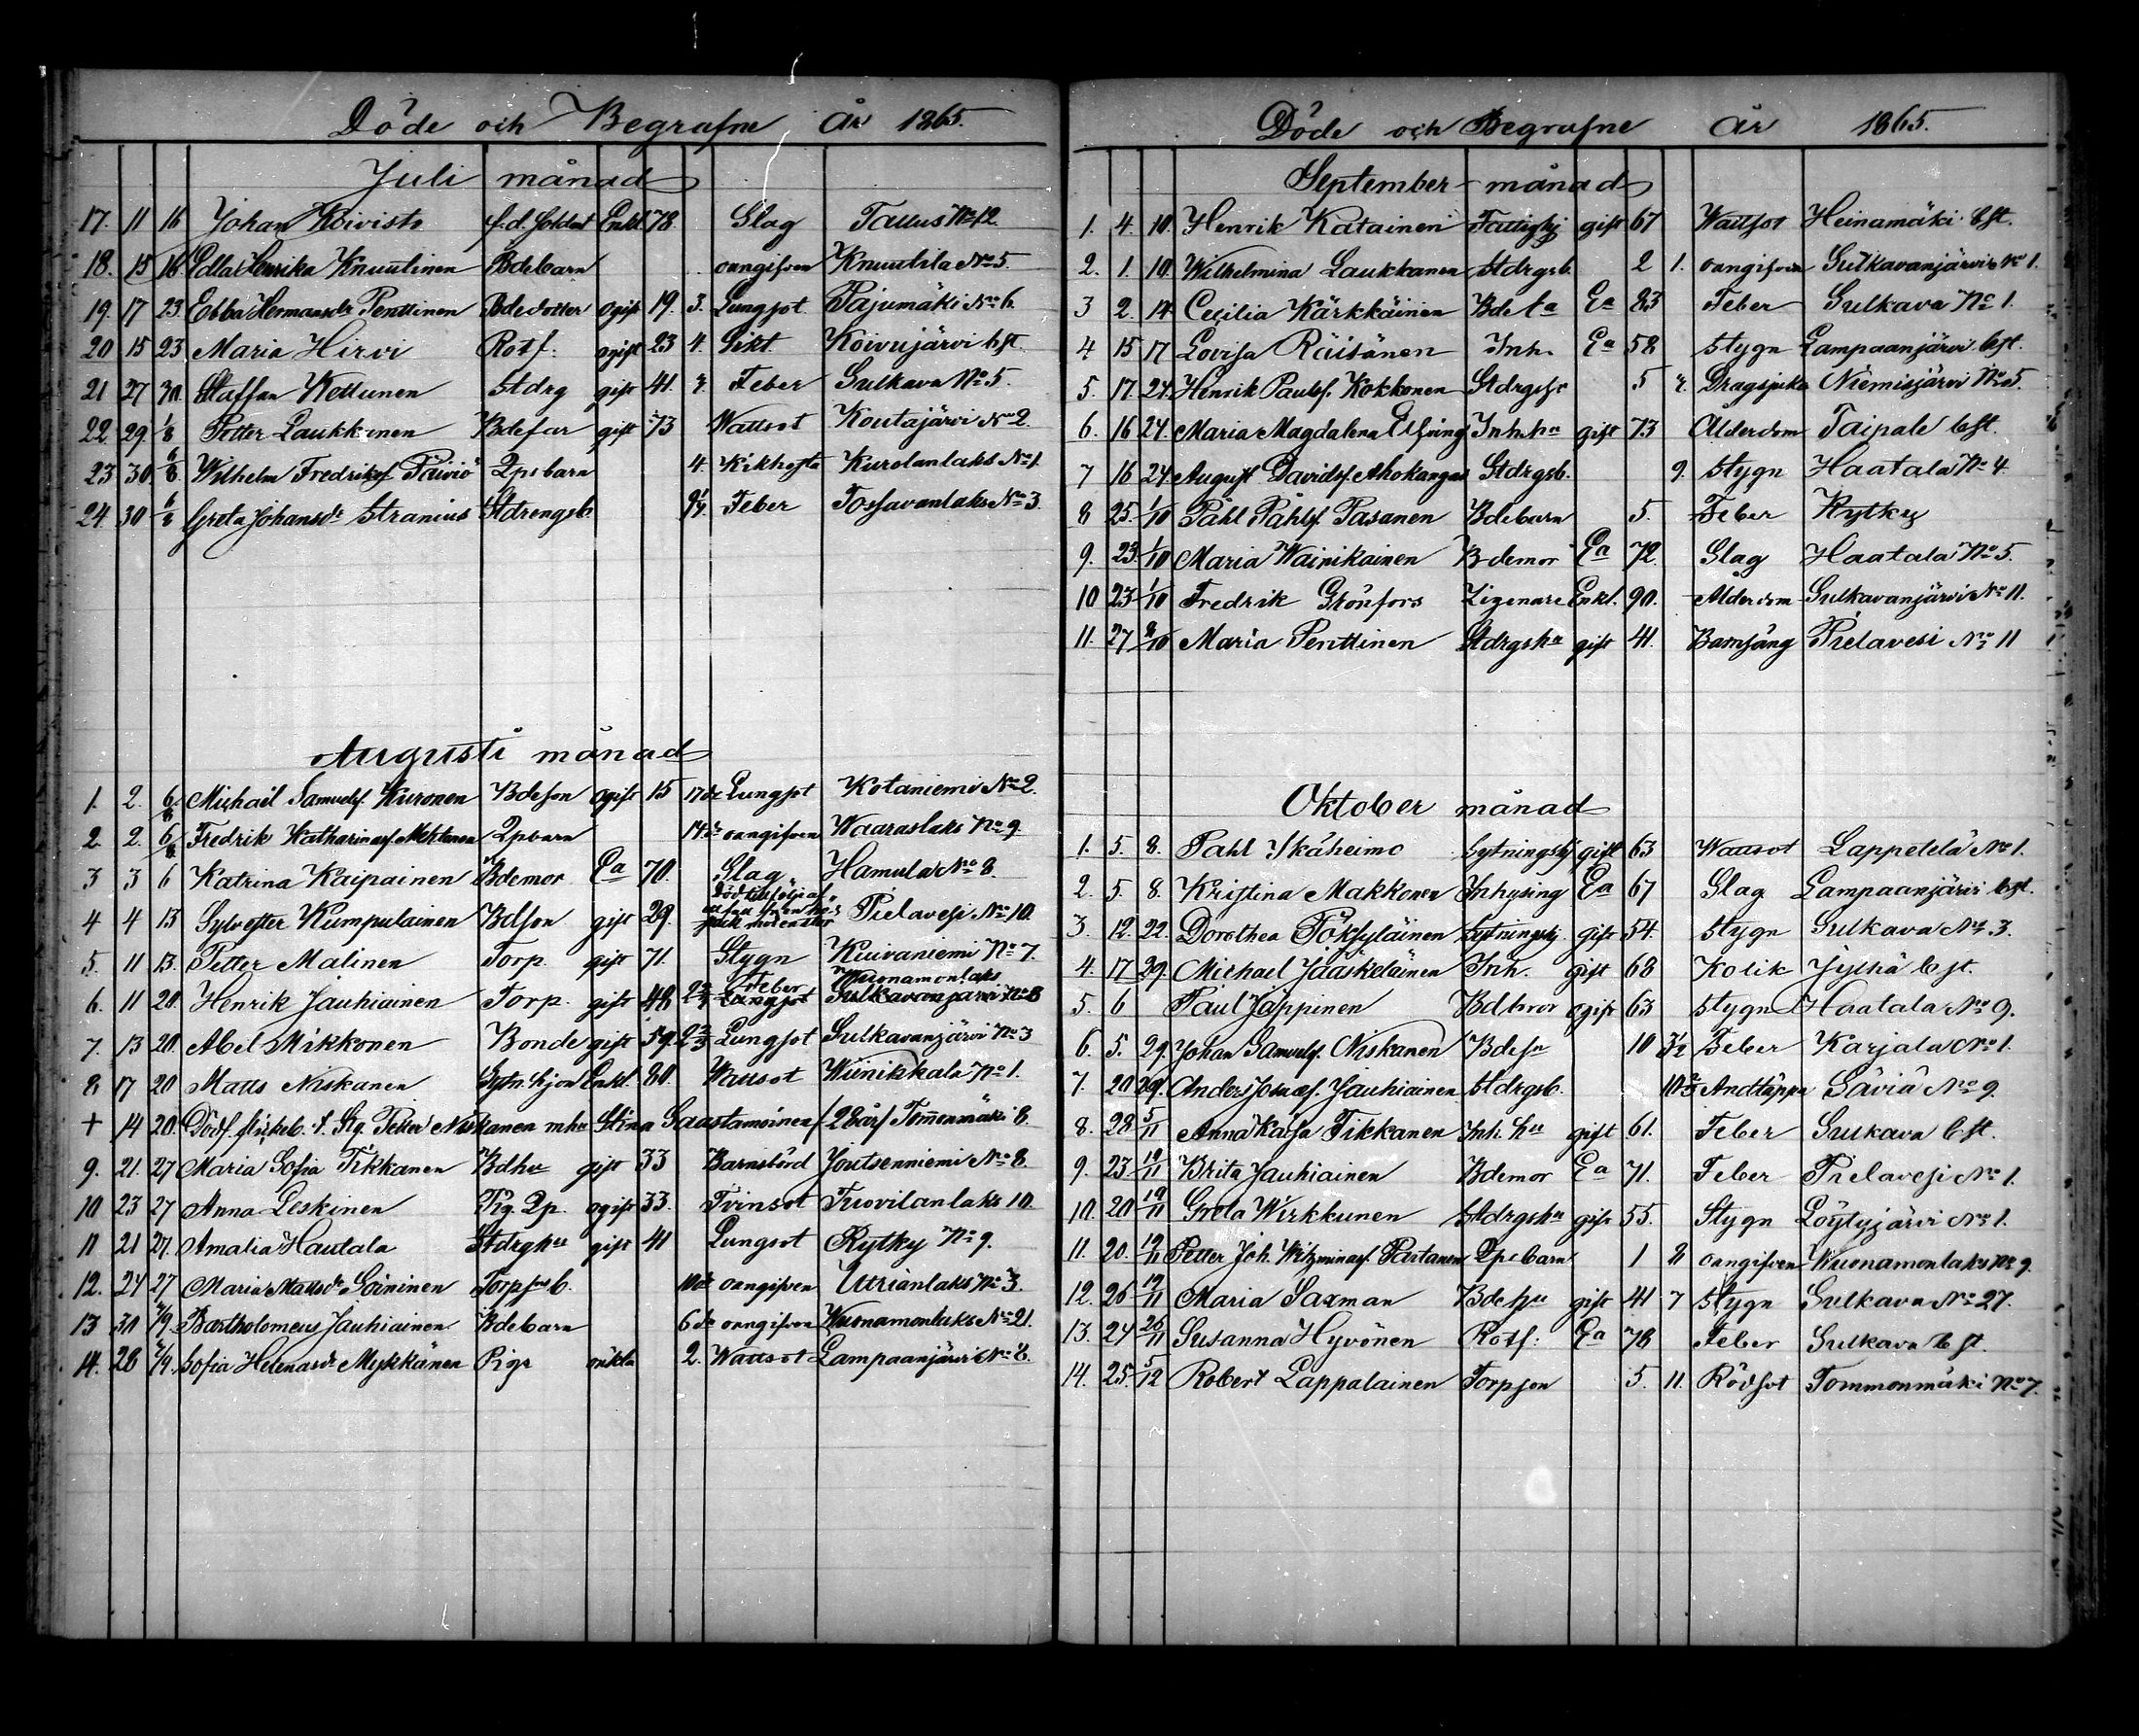 Döde och Begrafne År 1865.
Juli månad
17. 11 16 Johan Koivisto f.d. Soldat Enkl. 78. Slag Tallus No 12.
18. 15 16 Edla Henrika Knuutinen Bdebarn oangifven Knuutila No 5.
19. 17 23. Ebba Hermansdr Penttinen Bdedotter ogift 19. 3. Lungsot Pajumäki No 6.
20 15 23 Maria Hirvi Rotf: ogift 23 4. Gikt. Koivujärvi bst.
21 27 30. Staffan Kettunen Stdrg gift 41. Feber Sulkava No 5.
22. 29. 1/8 Petter Laukkanen Bdefar gift 73 Wattsot Koutajärvi No 2.
23 30 6/8 Wilhelm Fredriksf. Päiviö Qpsbarn 4. Kikhosta Kurolanlaks No 1.
24. 30 6/8 Greta Johansdr Stranius Stdrengsb. Feber Tossavanlaks No 3.
Augusti månad
1. 2. 6/8 Michaël Samuelsf. Kuronen Bdeson ogift 15 17 dr Lungsot Kotaniemi No 2.
2. 2. 6/8 Fredrik Katharinasf. Qpbarn 14 dr oangifven Waaraslaks No 9.
3 3 6 Katrina Kaipainen Bdemor Ea 70. Slag Hamula No 8.
4 4 13 Sylvester Kumpulainen Bdson gift 29. Död till följd af Pielavesi No 10.
5. 11 13. Petter Malinen Torp. gift 71. Stygn Kuivaniemi No 7.
6. 11 20. Henrik Jauhiainen Torp. gift 48 Feber Lungsot Wuonamonlaks Sulkavanjärvi No 8
7. 13 20. Abel Mikkonen Bonde gift 59. Lungsot Sulkavanjärvi No 3
8. 17 20 Matts Niskanen Sytn.hjon Enkl. 80. Wattsot Wiinikkala No 1.
+ 14 20. Dödf. flickeb. f. Stg. Petter Niskanen m hu Stina Saastamoinen f. 28 år Tommonmäki 8.
9. 21. 27 Maria Sofia Tikkanen Bdhu gift 33 Barnsbörd Joutsenniemi No 8.
10 23 27 Anna Leskinen Pig. Qp. ogift 33. Tvinsot Tuovilanlaks 10.
11 21 27. Amalia Hautala Stdrghu gift 41 Lungsot Rytky No 9.
12. 24 27 Maria Mattsdr Soininen Torpsb. 10 dr oangifven Utrianlaks No 3.
13 30 2/9. Bartholomeus Jauhiainen Bdebarn 6 dr oangifven Wuonamonlaks No 21.
14. 28 2/9. Sofia Helenasdr Mykkänen Pigs oäkta 2. Wattsot Lampaanjärvi No 8.
Döde och Begrafne År 1865.
September månad
1. 4. 10. Henrik Katainen Fattighj gift 67 Wattsot Heinamäki bst.
2. 1. 10. Wilhelmina Laukkanen Stdrgsb. 2 1. oangifven Sulkavanjärvi No 1.
3 2. 17. Cecilia Kärkkäinen Bde Ea 83 Feber Sulkava No 1.
4 15 17 Lovisa Räisänen Inh. Ea 58 Stygn Lampaanjärvi bst.
5. 17. 24. Henrik Paulsf. Kokkonen Stdrgsfr 5 Dragsjuka Niemisjärvi No 5.
6. 16 24. Maria Magdalena Elfving Inh.hu gift 73 Ålderdom Taipale bst.
7 16 24 August Davidsf. Ahokangas Stdrgsb. 9. Stygn Haatala No 4.
8 25. 1/10 Påhl Påhlsf. Pasanen Bdebarn 5. Feber Rytky
9. 23. 1/10 Maria Wainikainen Bdemor Ea 72. Slag Haatala No 5.
10 23 1/10 Fredrik Grönfors Zigenare Enkl. 90. Ålderdom Sulkavanjärvi No 11.
11. 27 8/10 Maria Penttinen Stdrgshu gift 41. Barnsäng Pielavesi No 11
Oktober månad
1. 5. 8. Pahl Ikäheimo Sytningshj gift 63 Wattsot Lappetelä No 1.
2. 5. 8. Kristina Makkonen Inhysing Ea 67 Slag Lampaanjärvi bst.
3. 12. 22. Dorothea Pöksyläinen Sytningshj gift 54. Stygn Sulkava No 3.
4. 17 29. Michael Jääskeläinen Inh. gift 68 Kolik Jylhä bst.
5. 6 Paul Jäppinen Bdbror ogift 63 Stygn Haatala No 9.
6. 5. 29. Johan Samuelsf. Niskanen Bdesn 10 Feber Karjala No 1.
7. 20 29. Anders Josuasf. Jauhiainen Stdrgsb. Andtäppa Säviä No 9.
8. 28 5/11 Anna Kaisa Tikkanen Inh. hu gift 61. Feber Sulkava bst.
9. 23. 19/11 Brita Jauhiainen Bdemor Ea 71. Feber Pielavesi No 1.
10. 20 19/11 Greta Wirkkunen Stdrgshu gift 55. Stygn Löytyjärvi No 1.
11. 20. 19/11 Petter Joh. Partanen Qpsbarn 1 8 oangifven Wuonamonlaks No 9.
12. 26 19/11 Maria Saxman Bdehu gift 41 7 Stygn Sulkava No 27.
13. 24 26/11 Susanna Hyvönen Rotf: Ea 78 Feber Sulkava bst.
14. 25. 5/12 Robert Lappalainen Torpson 5. 11. Rödsot Tommonmäki No 7.